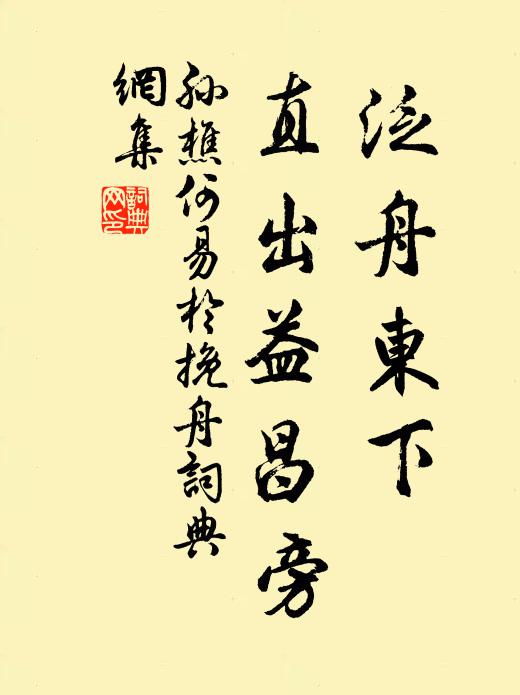 泛舟東下
直出益昌旁
孫樵何易於挽舟詞典
網集
詞典
网印